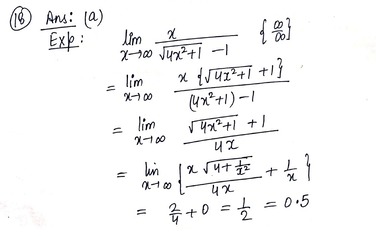 (18) Ans: (a)
Exp: lim x→∞ x / (√(4x²+1) - 1) {∞/∞}
= lim x→∞ x {√(4x²+1) + 1} / ((4x²+1) - 1)
= lim x→∞ (√(4x²+1) + 1) / 4x
= lim x→∞ { x √(4 + 1/x²) / 4x + 1/x }
= 2/4 + 0 = 1/2 = 0.5